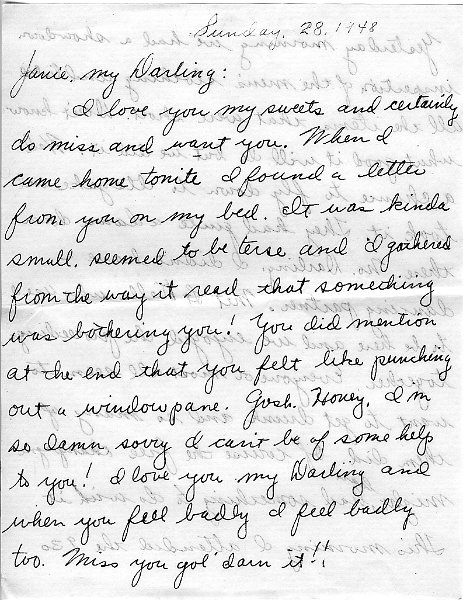 Sunday, 28, 1948
Janie, my Darling:
I love you my sweets and certainly
do miss and want you. When I
came home tonite I found a letter
from you on my bed. It was kinda
small, seemed to be terse and I gathered
from the way it read that something
was bothering you! You did mention
at the end that you felt like punching
out a window pane. Gosh, Honey, I'm
so damn sorry I can't be of some help
to you! I love you my Darling and
when you feel badly I feel badly
too. Miss you gol' darn it!!